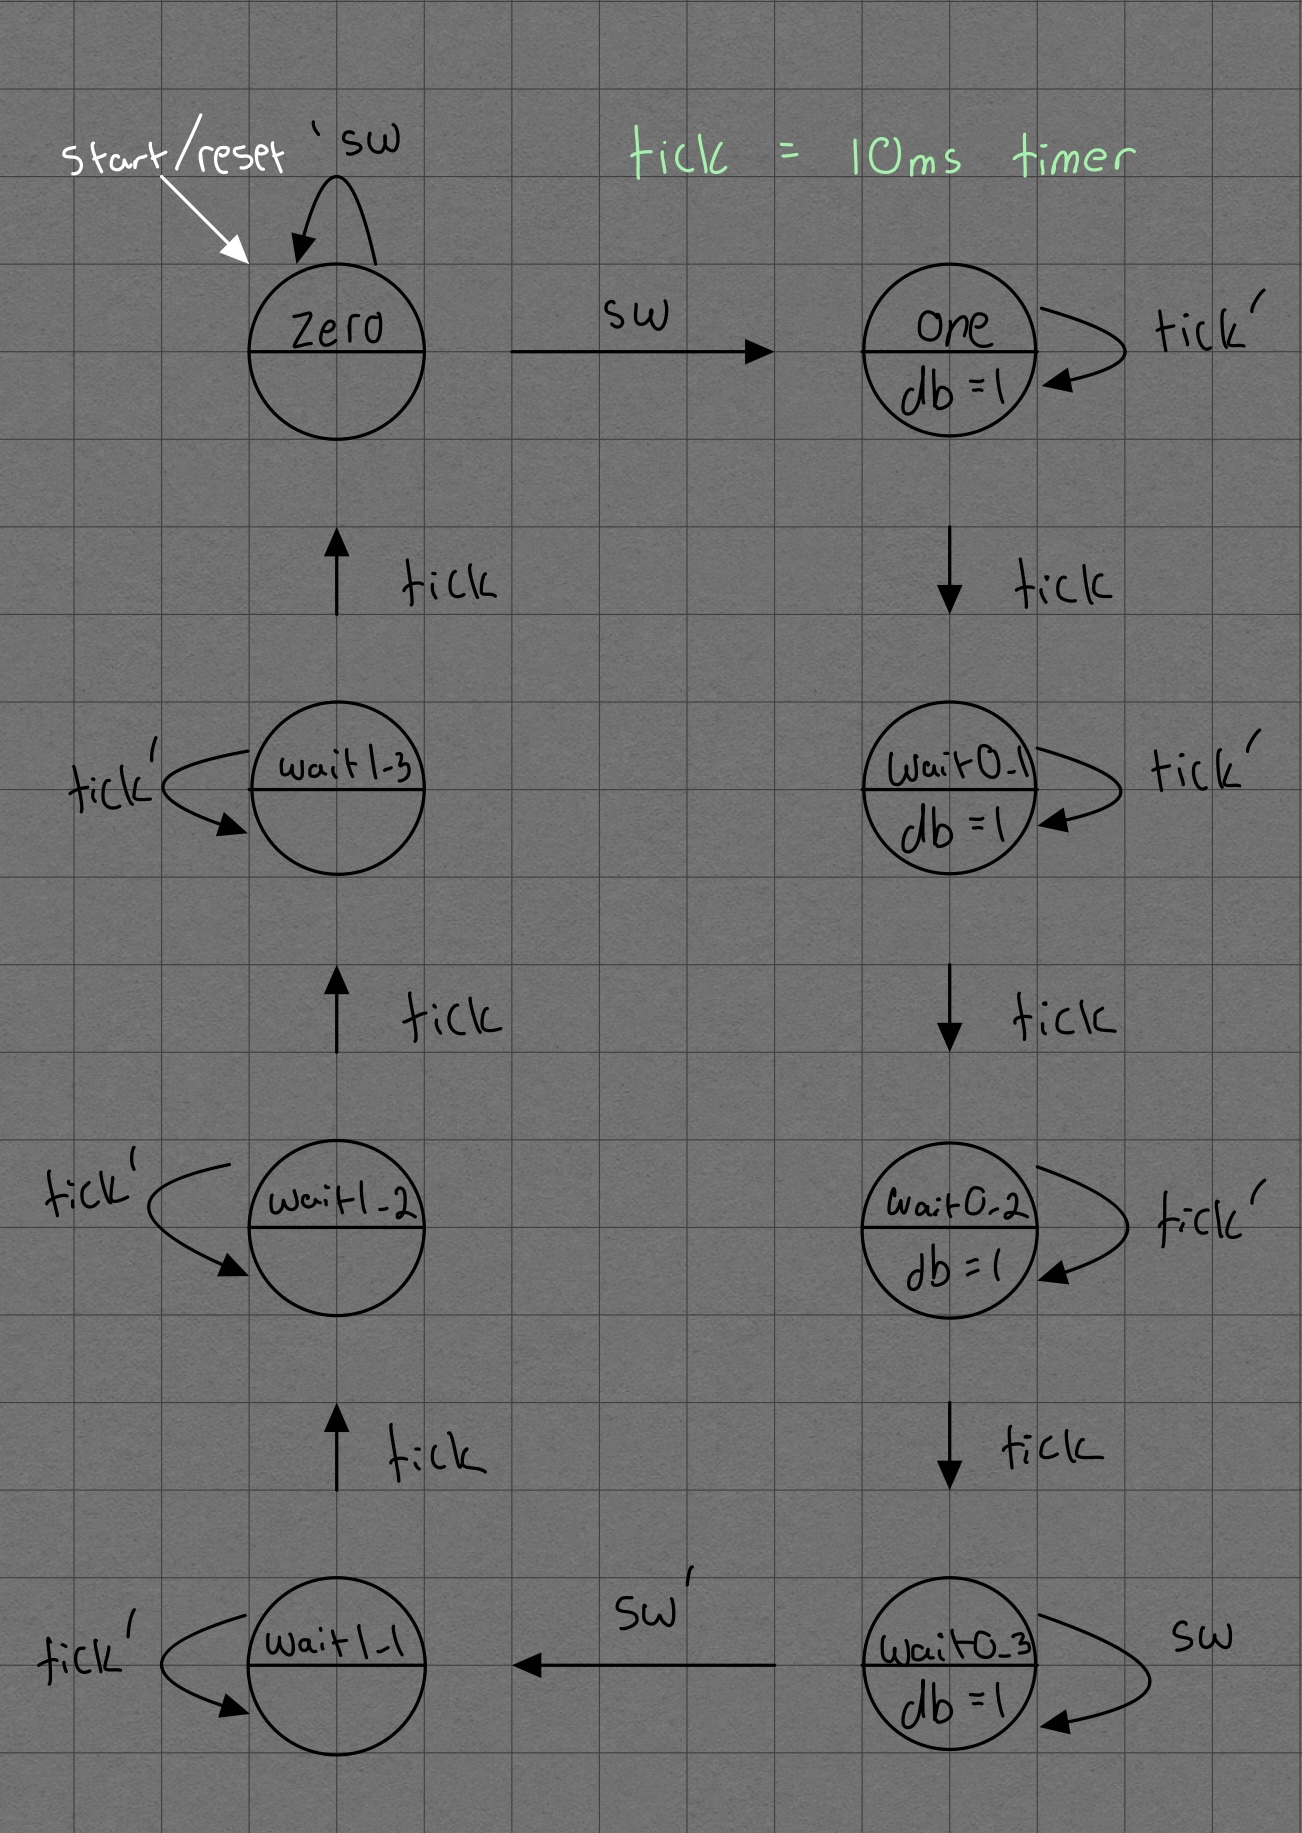 start/reset 'sw
tick = 10ms timer
zero
sw
one
db=1
tick'
tick
tick
wait1-3
tick'
wait0-1
db=1
tick'
tick
tick
tick'
wait1-2
wait0-2
db=1
tick'
tick
tick
tick'
wait1-1
sw'
wait0-3
db=1
sw